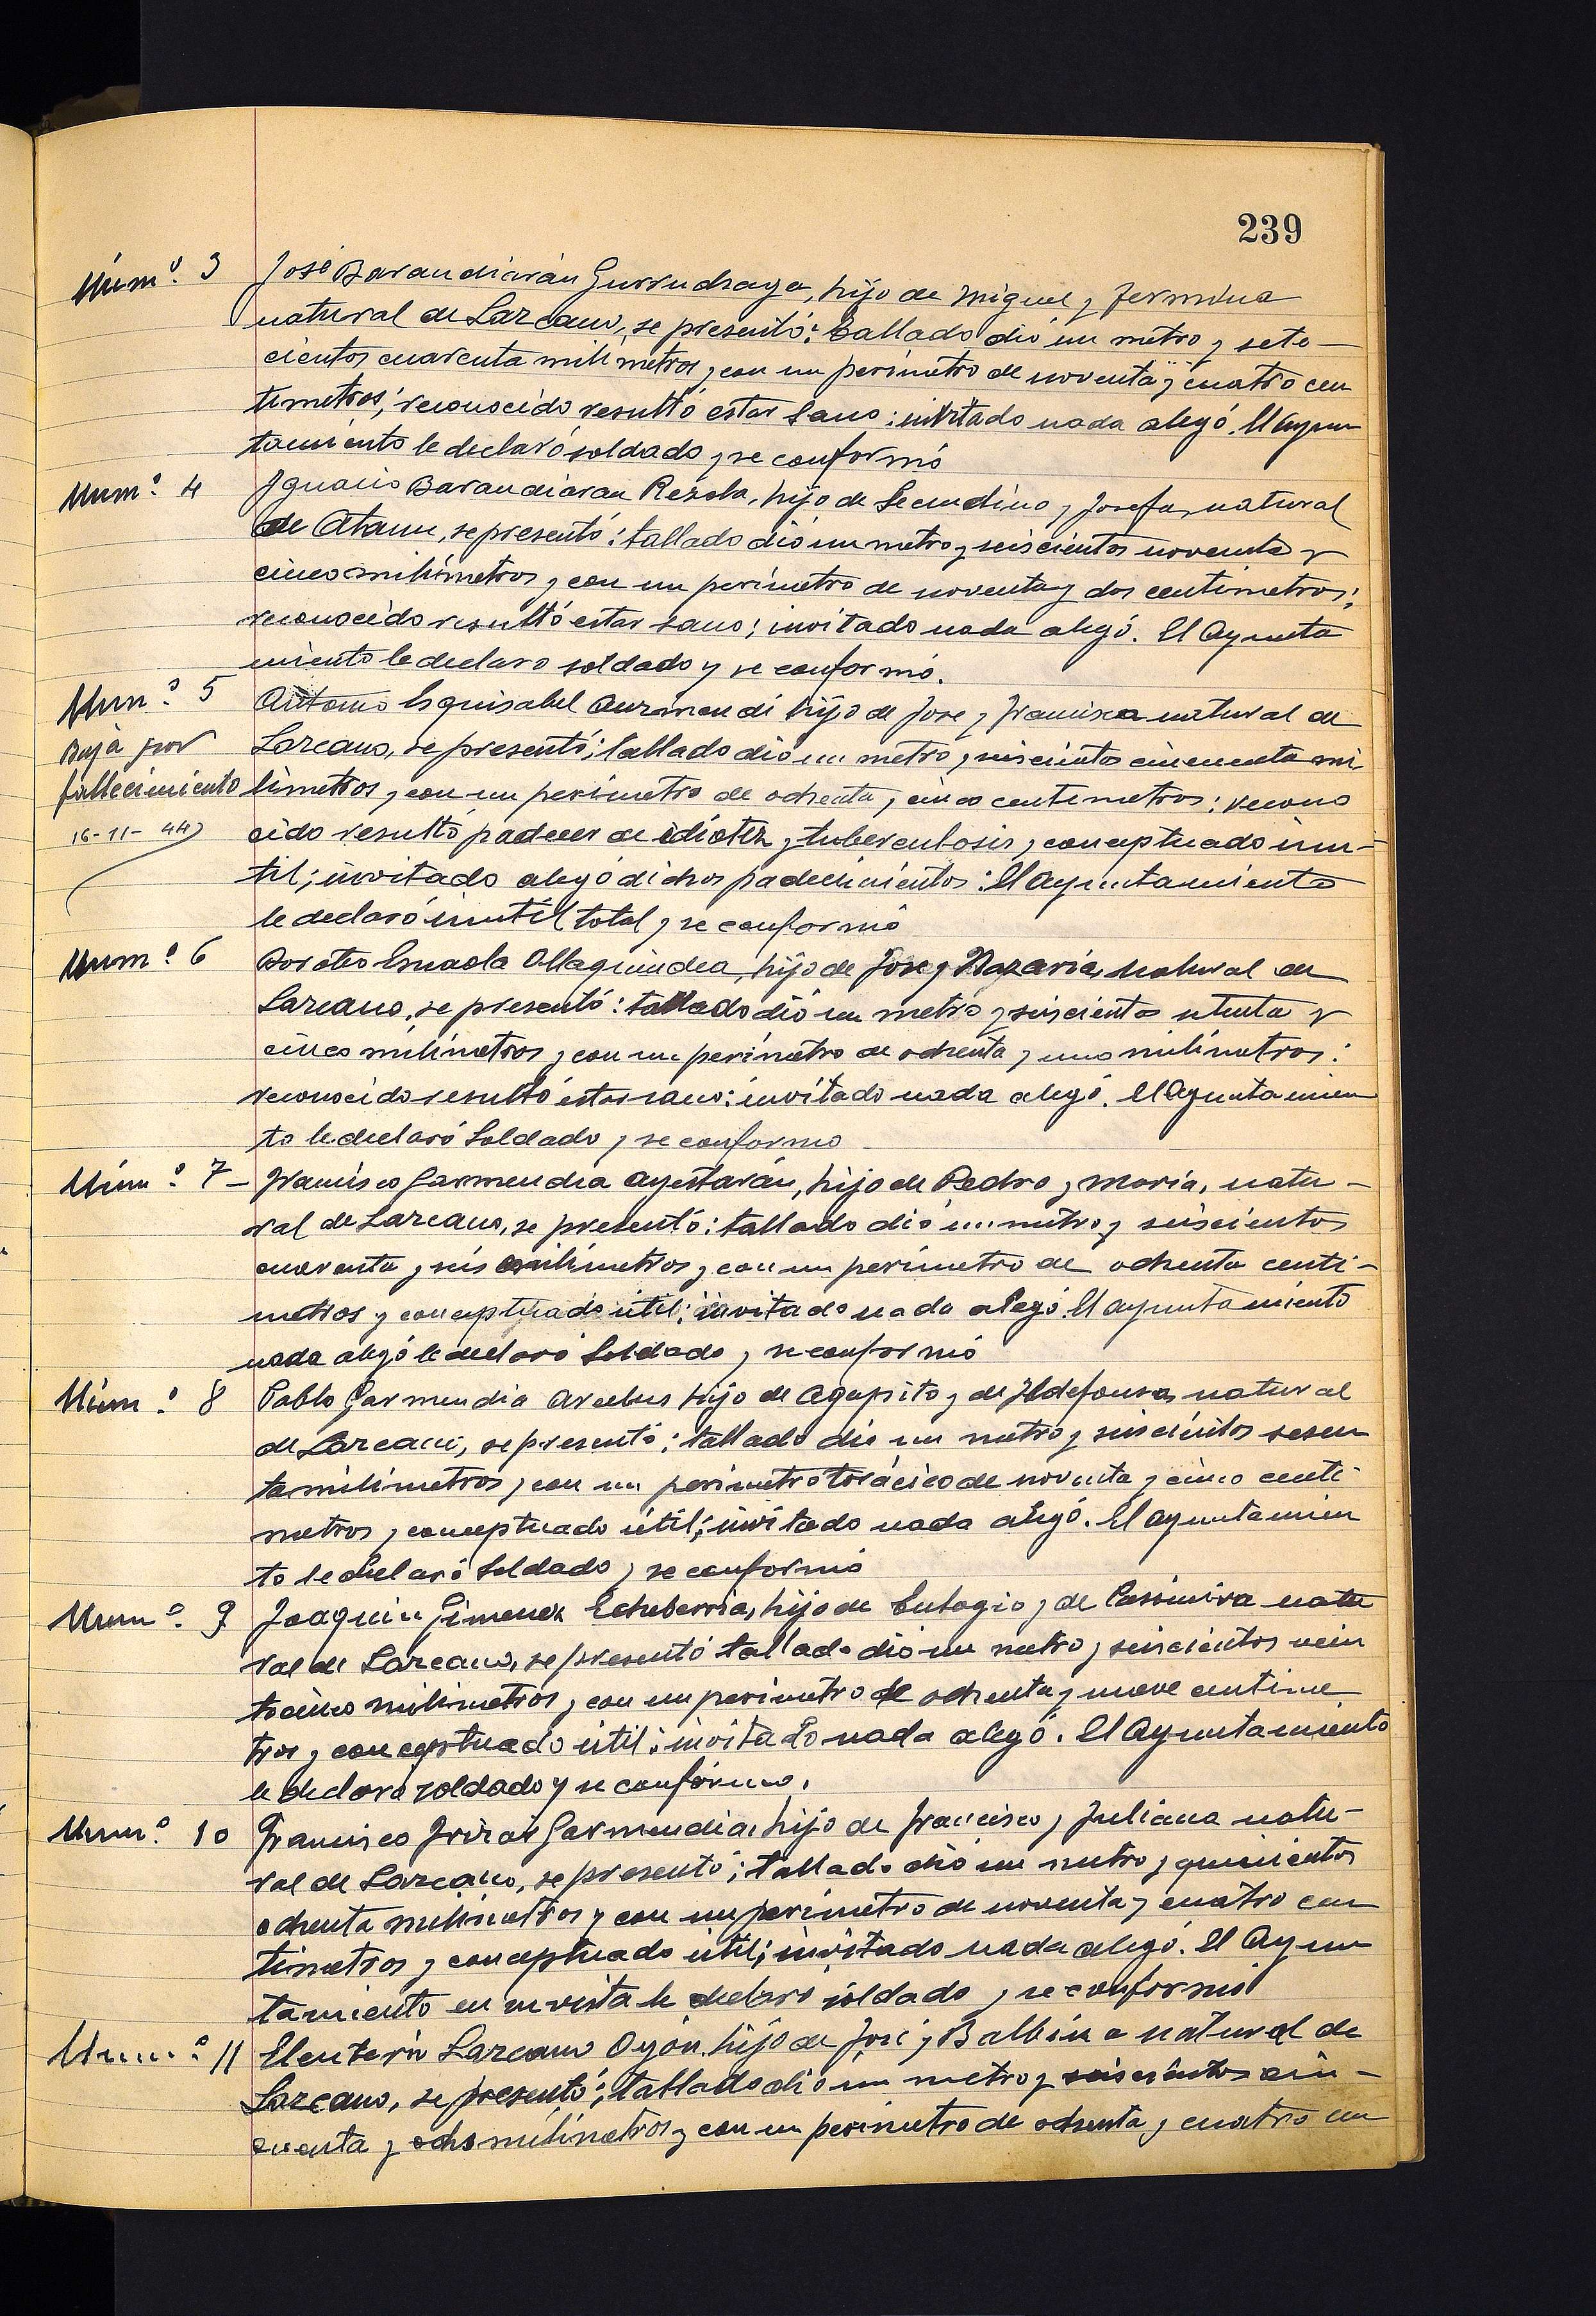 239
Núm.º 3 José Barandiarán Gurruchaga, hijo de Miguel y Fermina
natural de Lazcano, se presentó: tallado dió un metro y sete-
cientos cuarenta milímetros y con un perimetro de noventa y cuatro cen
timetros; reconocido resultó estar sano: invitado nada alegó. El Ayun
tamiento le declaró soldado y se conformó
Num.º 4 Ignacio Barandiaran Rezola, hijo de Secundino y Josefa, natural
de Ataun, se presentó: tallado dió un metro y seiscientos noventa y
cinco milímetros y con un perímetro de noventa y dos centimetros;
reconocido resultó estar sano; invitado nada alegó. El Ayunta
miento le declaro soldado y se conformó.
Num.º 5 Antonio Esquisabel Aurmendi hijo de Jose y Francisca natural de
Baja por
Lazcano, se presentó; tallado dió un metro y seiscientos cincuenta mi
fallecimiento
límetros y con un perímetro de ochenta y cinco centimetros: recono
16-11-44
cido resultó padecer de idiotez y tuberculosis y conceptuado inu-
til; invitado alegó dichos padecimientos: El Ayuntamiento
le declaró inutil total y se conformó
Num.º 6 Doroteo Ollaquindea, hijo de Jose y Nazaria, natural de
Lazcano, se presentó: tallado dió un metro y seiscientos setenta y
cinco milímetros y con un perímetro de ochenta y uno milímetros:
reconocido resultó estar sano: invitado nada alegó. El Ayuntamien
to le declaró Soldado y se conformo
Núm.º 7 - Francisco Garmendia Ayestarán, hijo de Pedro y Maria, natu-
ral de Lazcano, se presentó: tallado dió un metro y seiscientos
cuarenta y seis milímetros y con un perímetro de ochenta centi-
metros y conceptuado útil; invitado nada alegó. El ayuntamiento
nada alegó le declaró Soldado y se conformó
Núm.º 8 Pablo Garmendia Arcelus hijo de Agapito y de Ildefonsa, natural
de Lazcano, se presentó: tallado dió un metro y seiscientos sesen
ta milímetros y con un perimetro torácico de noventa y cinco centi-
metros y conceptuado útil; invitado nada alegó. El ayuntamien
to le declaró Soldado y se conformó
Num.º 9 Joaquin Gimenez Echeberria, hijo de Eulogio y de Cassimira natu
ral de Lazcano, se presentó tallado dió un metro y seiscientos vein
ticinco milimetros y con un perimetro de ochenta y nueve centime
tros y conceptuado útil; invitado nada alegó. El Ayuntamiento
le declara soldado y se conformo.
Num.º 10 Francisco Irizar Garmendia, hijo de Francisco y Juliana natu-
ral de Lazcano, se presentó; tallado dió un metro y quinientos
ochenta milimetros y con un perimetro de noventa y cuatro cen
timetros y conceptuado útil; invitado nada alegó. El Ayun
tamiento en su vista le declaró soldado y se conformó
Num.º 11 Eleuterio Lazcano Oyón, hijo de José y Balbina natural de
Lazcano, se presentó; tallado dió un metro y seiscientos cin-
cuenta y ocho milímetros y con un perimetro de ochenta y cuatro cen